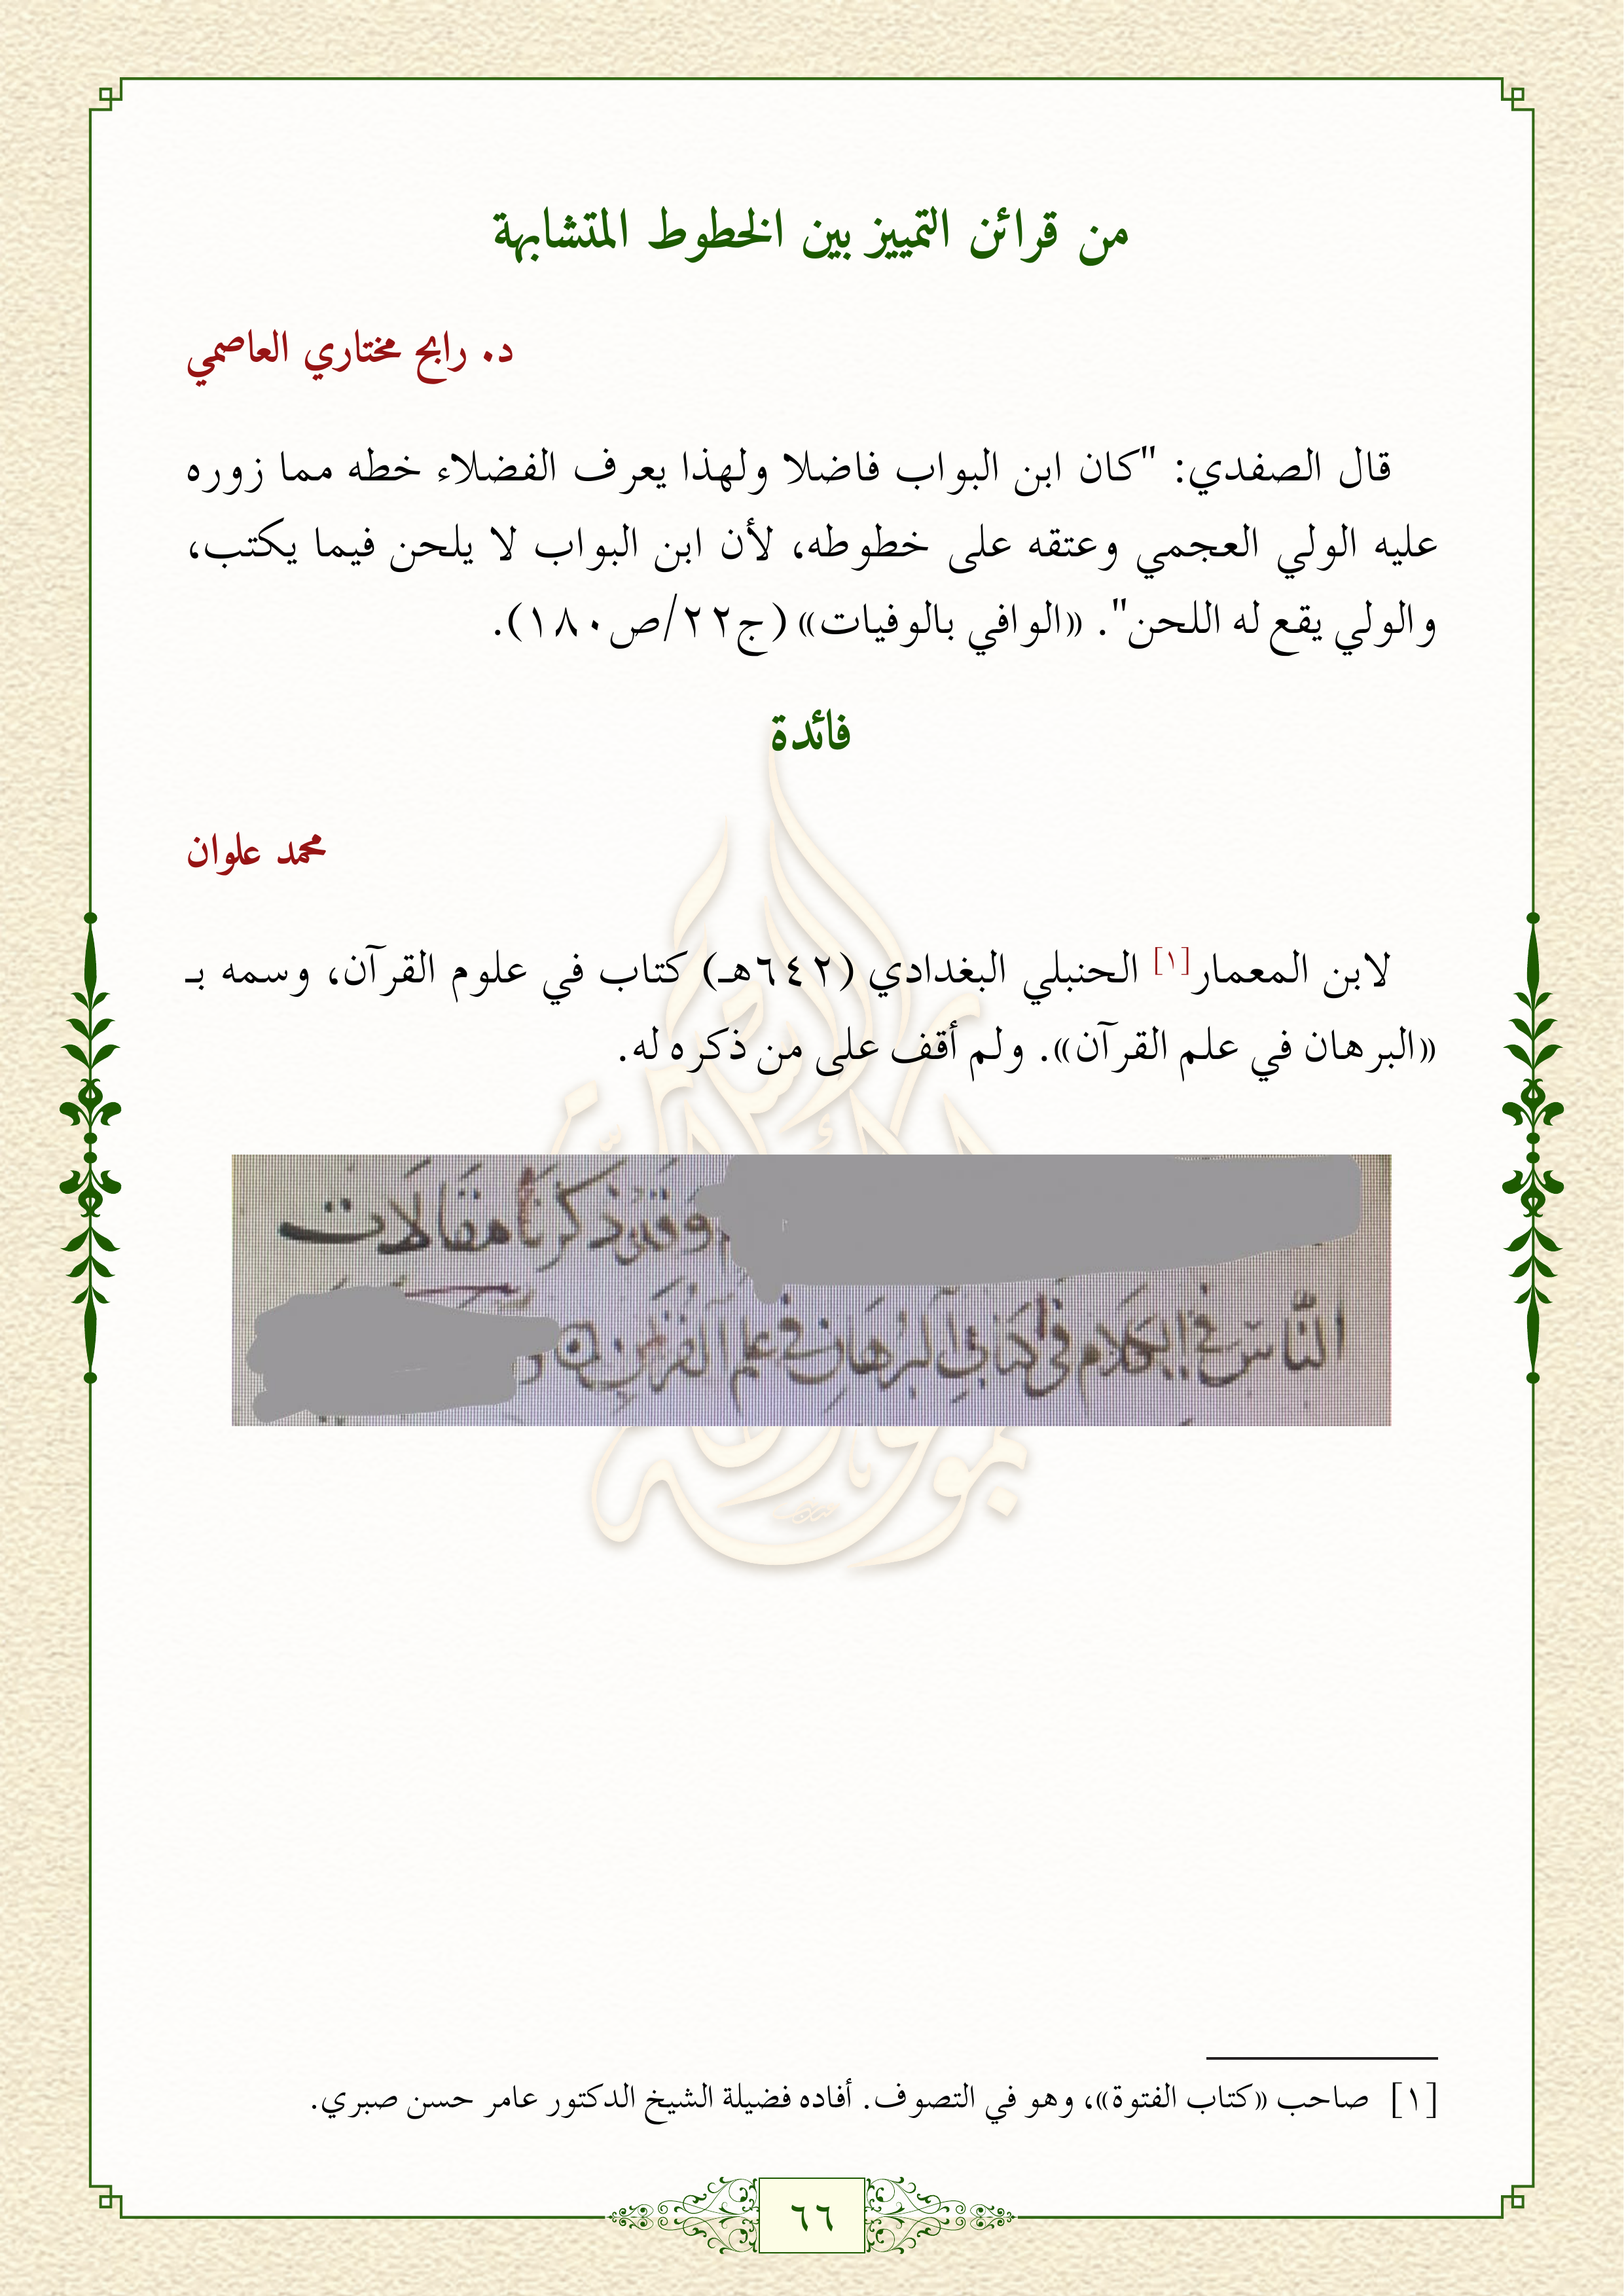 من قرائن التمييز بين الخطوط المتشابهة
د. رابح مختاري العاصمي
قال الصفدي: "كان ابن البواب فاضلا ولهذا يعرف الفضلاء خطه مما زوره
عليه الولي العجمي وعتقه على خطوطه، لأن ابن البواب لا يلحن فيما يكتب،
والولي يقع له اللحن". «الوافي بالوفيات» (ج٢٢/ص١٨٠).
فائدة
محمد علوان
لابن المعمار[١] الحنبلي البغدادي (٦٤٢هـ) كتاب في علوم القرآن، وسمه بـ
«البرهان في علم القرآن». ولم أقف على من ذكره له.
وقد ذكرنا مقالات
الناس في الكلام في كتاب البرهان في علم القرآن
[١] صاحب «كتاب الفتوة»، وهو في التصوف. أفاده فضيلة الشيخ الدكتور عامر حسن صبري.
٦٦